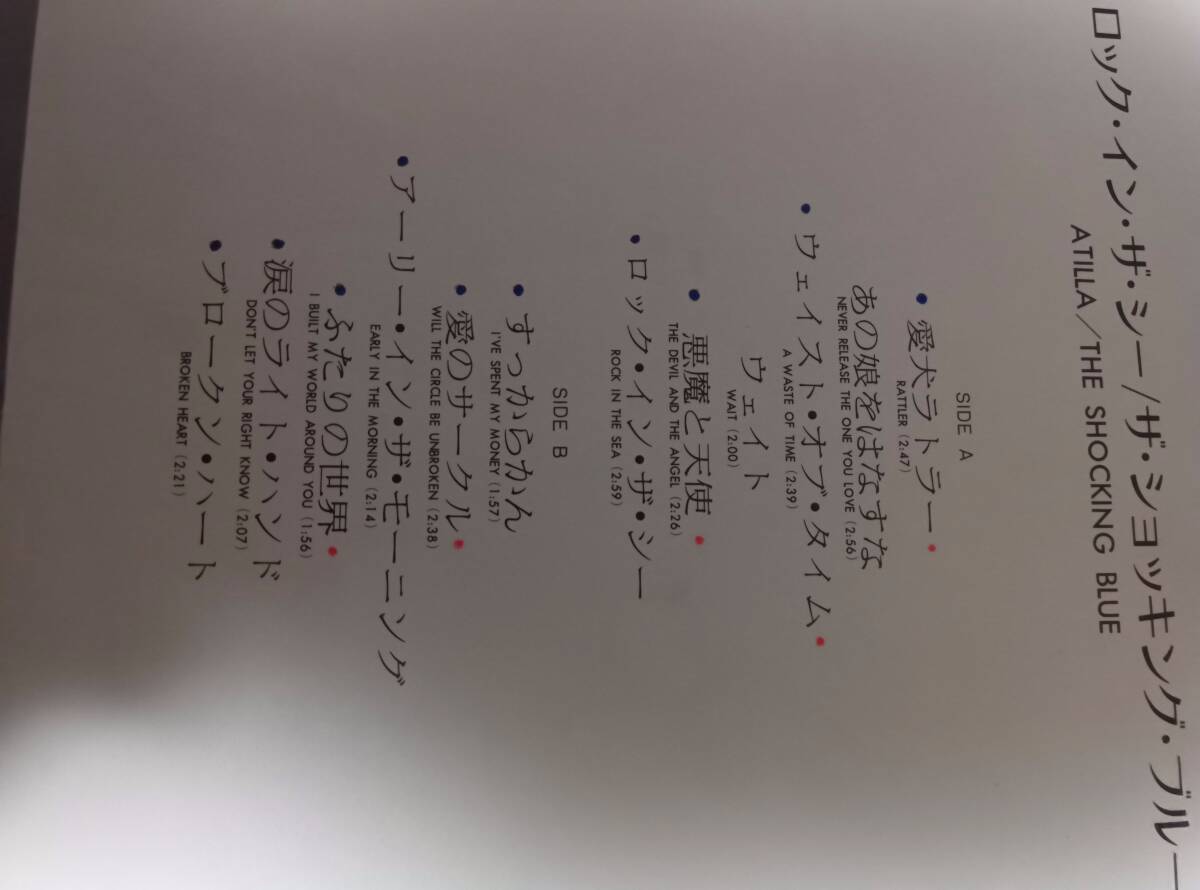 ロック・イン・ザ・シー/ザ・ショッキング・ブルー
ATILLA/THE SHOCKING BLUE
SIDE A
•愛犬ラトラー•
RATTLER (2:47)
あの娘をはなすな
NEVER RELEASE THE ONE YOU LOVE (2:56)
•ウェイスト・オブ・タイム•
A WASTE OF TIME (2:39)
ウェイト
WAIT (2:00)
•悪魔と天使•
THE DEVIL AND THE ANGEL (2:26)
•ロック・イン・ザ・シー
ROCK IN THE SEA (2:59)
SIDE B
•すっからかん
I'VE SPENT MY MONEY (1:57)
•愛のサークル•
WILL THE CIRCLE BE UNBROKEN (2:38)
•アーリー・イン・ザ・モーニング
EARLY IN THE MORNING (2:14)
•ふたりの世界•
I BUILT MY WORLD AROUND YOU (1:56)
•涙のライト・ハンド
DON'T LET YOUR RIGHT KNOW (2:07)
•ブロークン・ハート
BROKEN HEART (2:21)